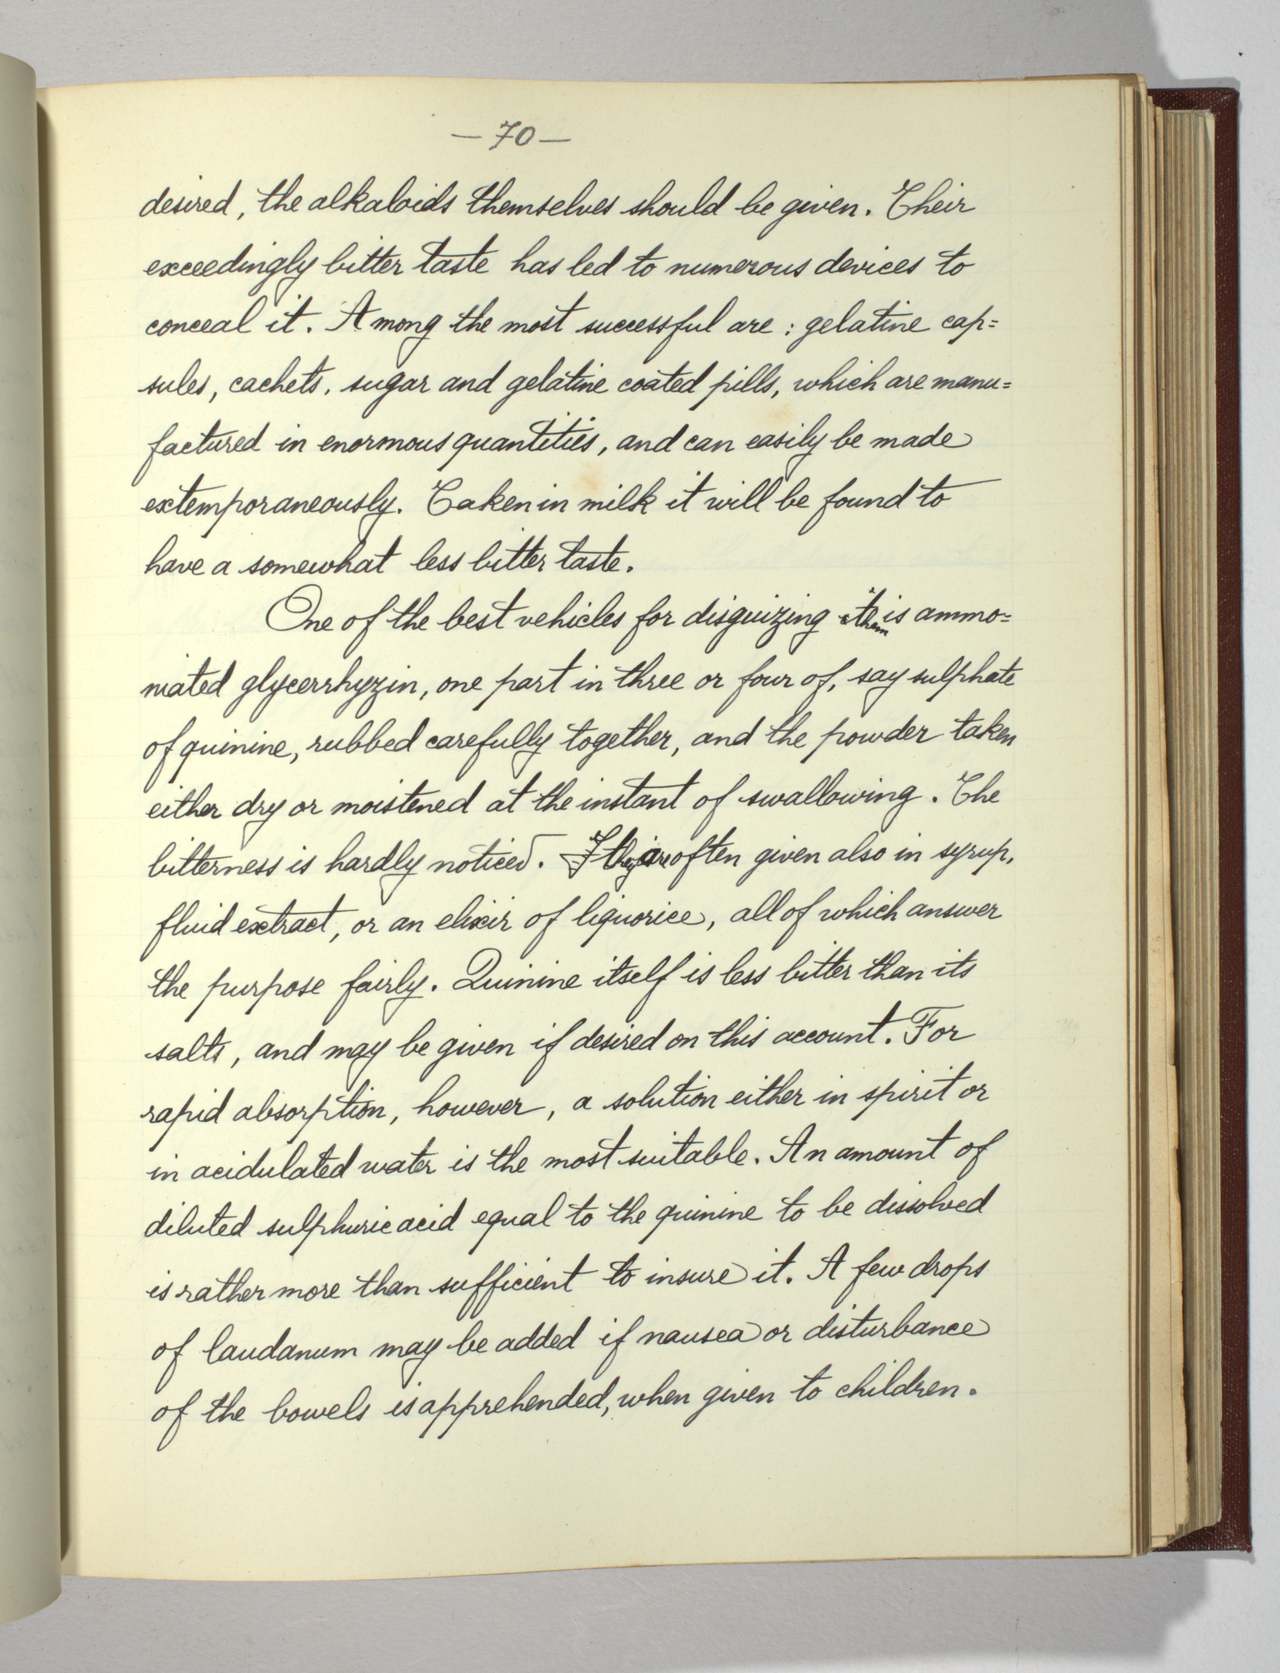 — 70 —
desired, the alkaloids themselves should be given. Their
exceedingly bitter taste has led to numerous devices to
conceal it. Among the most successful are : gelatine cap=
sules, cachets, sugar and gelatine coated pills, which are manu=
factured in enormous quantities, and can easily be made
extemporaneously. Taken in milk it will be found to
have a somewhat less bitter taste.
One of the best vehicles for disguizing them is ammo=
niated glycerrhyzin, one part in three or four of, say sulphate
of quinine, rubbed carefully together, and the powder taken
either dry or moistened at the instant of swallowing. The
bitterness is hardly noticed. They are often given also in syrup,
fluid extract, or an elixir of liquorice, all of which answer
the purpose fairly. Quinine itself is less bitter than its
salts, and may be given if desired on this account. For
rapid absorption, however, a solution either in spirit or
in acidulated water is the most suitable. An amount of
diluted sulphuric acid equal to the quinine to be dissolved
is rather more than sufficient to insure it. A few drops
of laudanum may be added if nausea or disturbance
of the bowels is apprehended, when given to children.